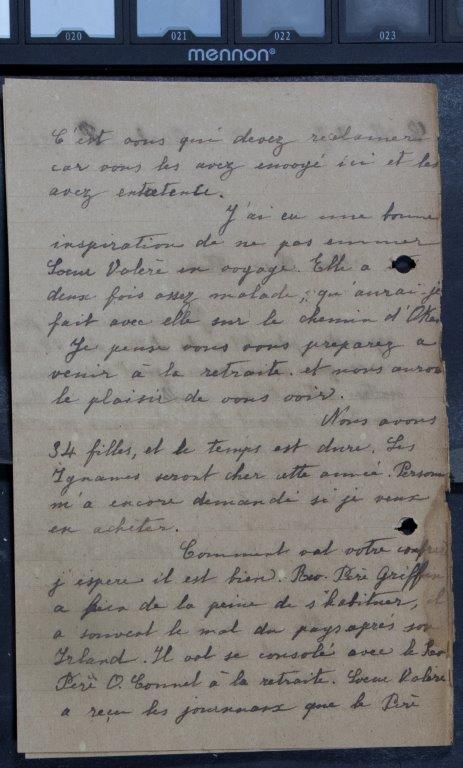 020 021 022 023
mennon®
C'est vous qui devez reclamer
car vous les avez envoyé ici et les
avez entretenue.
J'ai eu une bonne
inspiration de ne pas emmener
Soeur Valère en voyage. Elle a
deux fois assez malade, qu'aurai-je
fait avec elle sur le chemin d'
Je pense vous vous preparez a
venir à la retraite. et nous auron
le plaisir de vous voir.
Nous avons
34 filles, et le temps est dure. Les
Ignames seront cher cette année. Person
m'a encore demandé si je veux
en acheter.
Comment vat votre
j'espere il est bien. Rev. Père Griffin
a bien de la peine de s'habituer, et
a souvent le mal du pays après son
Irland. Il vat se consolé avec le Rev
Père O. Connel à la retraite. Soeur Valère
a reçu les journaux que le Père